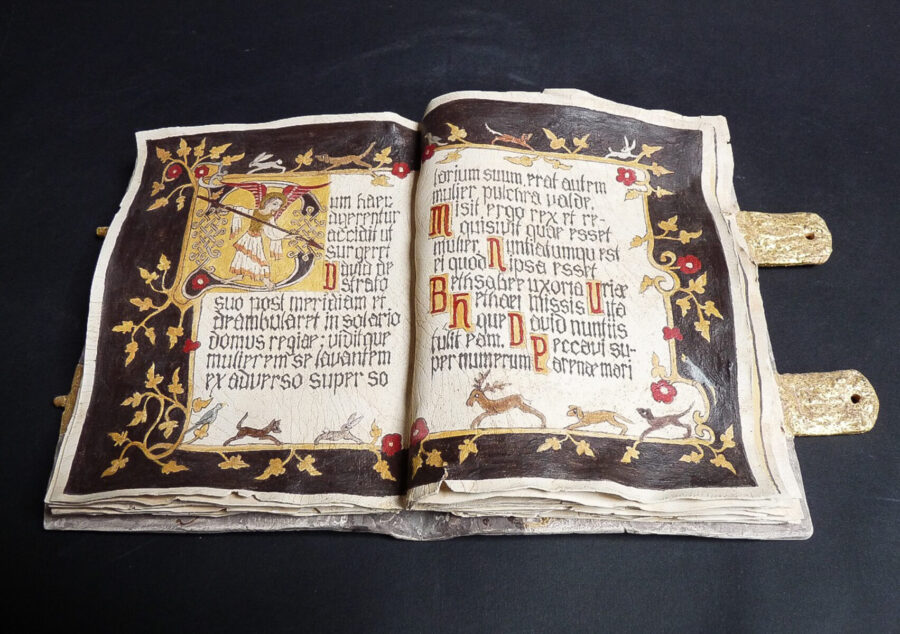 um haec
averentur
accidit ut
surgeret
David de
strato
suo post meridiam et
deambularet in solario
domus regiae; viditque
mulierem se lavantem
ex adverso super so
larium suum erat autem
mulier pulchra valde.
Misit ergo rex et re-
quisivit quae esset
mulier, Nuntiatumqu est
ei quod ipsa esset
Bethsaber uxoria Uriæ
Hethaei missis itta
que David nuntiis
tulit eam. Peccavi su-
per numerum arenæ mari